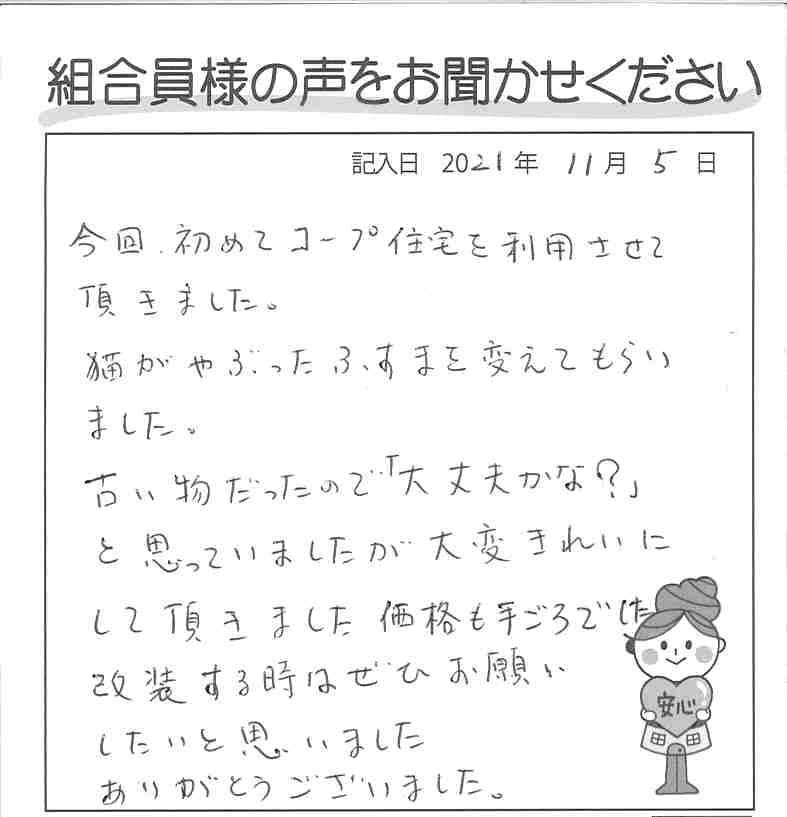 組合員様の声をお聞かせください
記入日 2021年 11月 5日
今回、初めてコープ住宅を利用させて
頂きました。
猫がやぶったふすまを変えてもらい
ました。
古い物だったので「大丈夫かな?」
と思っていましたが大変きれいに
して頂きました価格も手ごろでした
改装する時はぜひお願い
したいと思いました
ありがとうございました。
安心